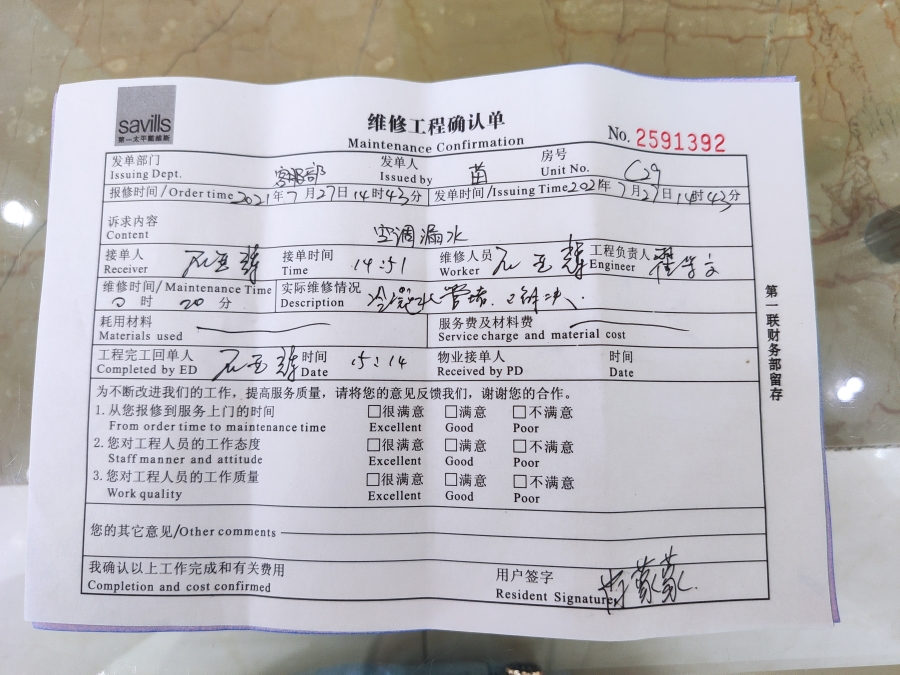 savills
第一太平戴维斯
维修工程确认单
Maintenance Confirmation
No. 2591392
发单部门 客服部 发单人 苗 房号 C29
Issuing Dept. Issued by Unit No.
报修时间/Order time 2021年7月27日14时43分 发单时间/Issuing Time 2021年7月27日14时43分
诉求内容 空调漏水
Content
接单人 石亚辉 接单时间 14:51 维修人员 石亚辉 工程负责人
Receiver Time Worker Engineer
维修时间/Maintenance Time 实际维修情况 冷凝水管堵
0时20分 Description
耗用材料 服务费及材料费
Materials used Service charge and material cost
工程完工回单人 石亚辉 时间 15:14 物业接单人 时间
Completed by ED Date Received by PD Date
为不断改进我们的工作，提高服务质量，请将您的意见反馈我们，谢谢您的合作。
1.从您报修到服务上门的时间 □很满意 □满意 □不满意
From order time to maintenance time Excellent Good Poor
2.您对工程人员的工作态度 □很满意 □满意 □不满意
Staff manner and attitude Excellent Good Poor
3.您对工程人员的工作质量 □很满意 □满意 □不满意
Work quality Excellent Good Poor
您的其它意见/Other comments
我确认以上工作完成和有关费用 用户签字
Completion and cost confirmed Resident Signature
第一联财务部留存